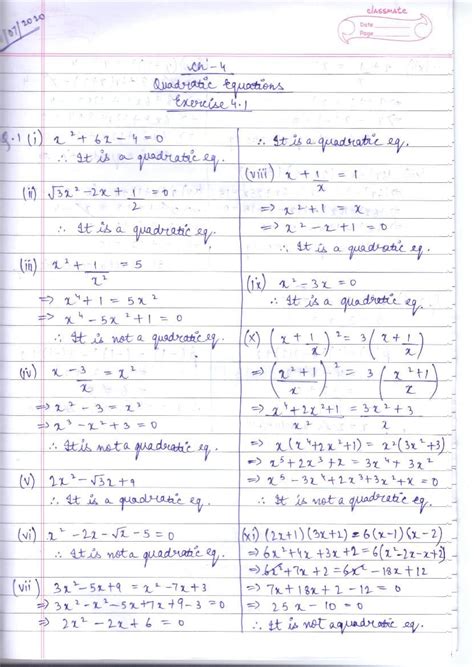 /07/2020
classmate
Date
Page
Ch - 4
Quadratic Equations
Exercise 4.1
Q.1 (i) x² + 6x - 4 = 0
∴ It is a quadratic eq.
(ii) √3x² - 2x + 1/2 = 0
∴ It is a quadratic eq.
(iii) x² + 1/x² = 5
⇒ x⁴ + 1 = 5x²
⇒ x⁴ - 5x² + 1 = 0
∴ It is not a quadratic eq.
(iv) x - 3/x = x²
⇒ x² - 3 = x³
⇒ x³ - x² + 3 = 0
∴ It is not a quadratic eq.
(v) 2x² - √3x + 9
∴ It is a quadratic eq.
(vi) x² - 2x - √x - 5 = 0
∴ It is not a quadratic eq.
(vii) 3x² - 5x + 9 = x² - 7x + 3
⇒ 3x² - x² - 5x + 7x + 9 - 3 = 0
⇒ 2x² - 2x + 6 = 0
∴ It is a quadratic eq.
(viii) x + 1/x = 1
⇒ x² + 1 = x
⇒ x² - x + 1 = 0
∴ It is a quadratic eq.
(ix) x² - 3x = 0
∴ It is a quadratic eq.
(x) (x + 1/x)² = 3(x + 1/x)
⇒ ((x² + 1)/x)² = 3((x² + 1)/x)
⇒ (x⁴ + 2x² + 1)/x² = (3x² + 3)/x
⇒ x(x⁴ + 2x² + 1) = x²(3x² + 3)
⇒ x⁵ + 2x³ + x = 3x⁴ + 3x²
⇒ x⁵ - 3x⁴ + 2x³ + 3x² + x = 0
∴ It is not a quadratic eq.
(xi) (2x+1)(3x+2) = 6(x-1)(x-2)
⇒ 6x² + 4x + 3x + 2 = 6(x² - 2x - x + 2)
⇒ 6x² + 7x + 2 = 6x² - 18x + 12
⇒ 7x + 18x + 2 - 12 = 0
⇒ 25x - 10 = 0
∴ It is not a quadratic eq.